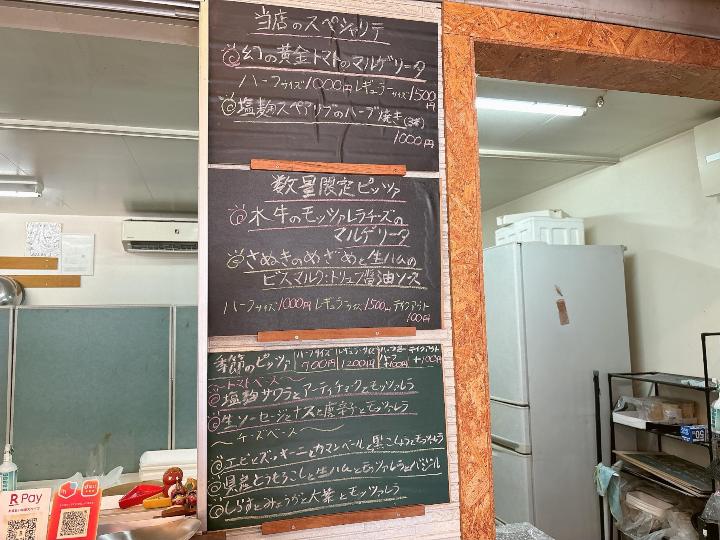 当店のスペシャリテ
幻の黄金トマトのマルゲリータ
ハーフサイズ1000円 レギュラーサイズ1500円
塩麹スペアリブのハーブ焼き(3本)
1000円
数量限定ピッツァ
水牛のモッツァレラチーズの
マルゲリータ
さぬきのめざめと生ハムの
ビスマルク:トリュフ醤油ソース
ハーフサイズ1000円 レギュラーサイズ1500円 テイクアウト
100円
季節のピッツァ
ハーフサイズ 700円
レギュラーサイズ 1200円
+100円
テイクアウト +100円
トマトベース
塩麹サワラとアーティチョークとモッツァレラ
生ソーセージとナスと唐辛子とモッツァレラ
チーズベース
エビとズッキーニとカマンベールと黒こしょうとモッツァレラ
県産とうもろこしと生ハムとモッツァレラとバジル
しらすとみょうがと大葉とモッツァレラ
R Pay